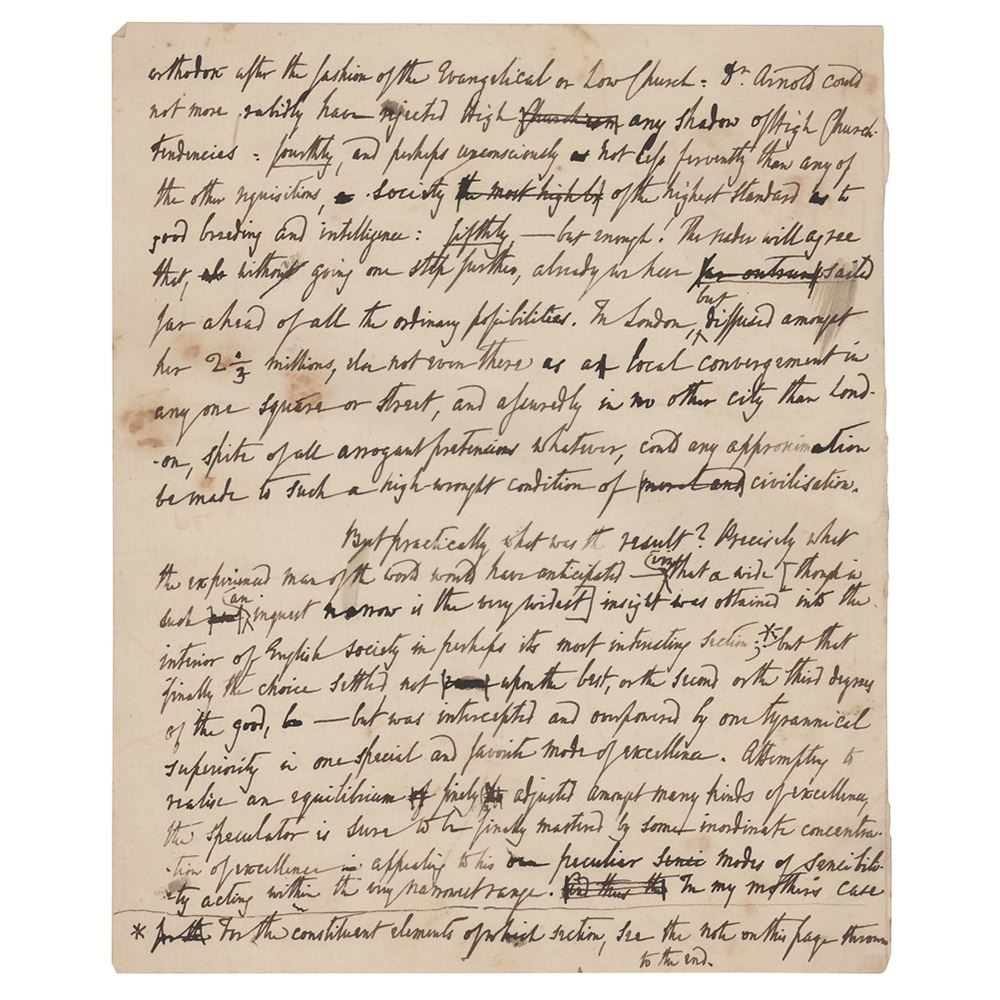 orthodox after the fashion of the Evangelical or Low Church: Dr. Arnold could
not more rabidly have rejected High Churchism any shadow of High Church-
tendencies: fourthly, and perhaps unconsciously as not less fervently than any of
the other requisitions, a society the most highly of the highest standard as to
good breeding and intelligence: fifthly, — but enough! The reader will agree
that, without going one step further, already we have far outrun sailed
far ahead of all the ordinary possibilities. In London, but diffused amongst
her 2 1/3 millions, not even there as a local convergement in
any one square or street, and assuredly in no other city than Lond-
-on, spite of all arrogant pretensions whatever, could any approximation
be made to such a high-wrought condition of moral and civilisation.
But practically what was the result? Precisely what
the experienced man of the world would have anticipated — viz. that a wide [though in
such an inquest narrow is the very widest] insight was obtained into the
interior of English society in perhaps its most interesting section;* but that
finally the choice settled, not upon the best, or the second or the third degrees
of the good, — but was intercepted and overpowered by one tyrannical
superiority in one special and favorite mode of excellence. Attempting to
realise an equilibrium of finely adjusted amongst many kinds of excellence,
the speculator is sure to be finally mastered by some inordinate concentra-
-tion of excellence in appealing to his own peculiar modes of sensibili-
-ty acting within the very narrowest range. And thus the In my mother's case
* for the For the constituent elements of which section, see the note on this page thrown
to the end.